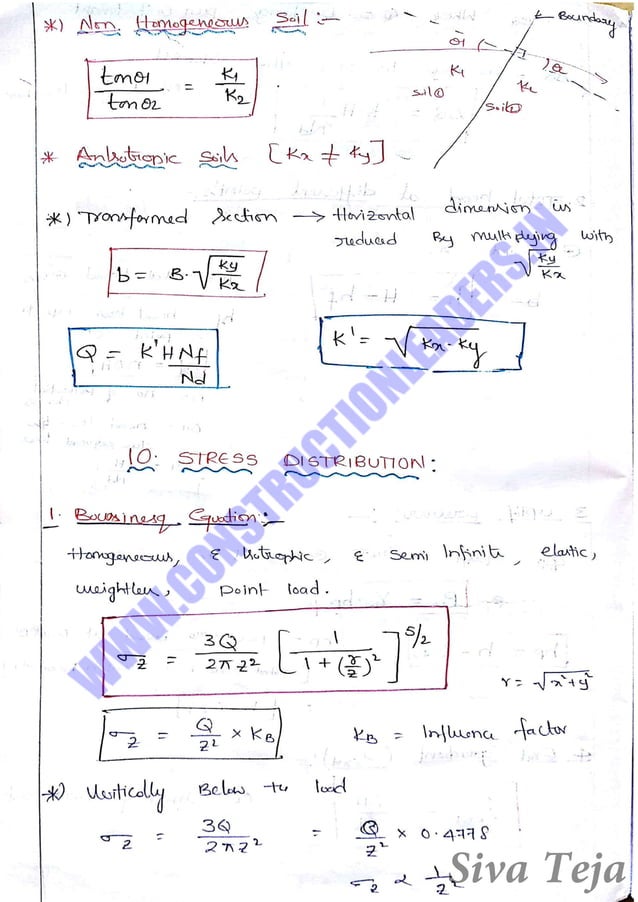 *) Non Homogeneous Soil :-
← Boundary
θ1
θ2
K1
K2
soil①
Soil②
tanθ1 / tanθ2 = K1 / K2 .
* Anisotropic Soils [Kx ≠ Ky]
*) Transformed Section → Horizontal dimension is
reduced By multiplying with
√(Ky/Kx)
b = B·√(Ky/Kx)
Q = K'H Nf / Nd
K' = √(Kx·Ky)
10. STRESS DISTRIBUTION:
1. Boussinesq Equation:-
Homogeneous, & Isotrophic, & Semi Infinite, elastic,
weightless, Point load.
σz = 3Q / 2πz² [ 1 / 1 + (r/z)² ]^5/2
r = √x²+y²
σz = Q/z² × KB
KB = Influence factor
*) Vertically Below the load
σz = 3Q / 2πz² = Q/z² × 0.4775
σz ∝ 1/z²
WWW.CONSTRUCTIONLEADERS.IN
Siva Teja